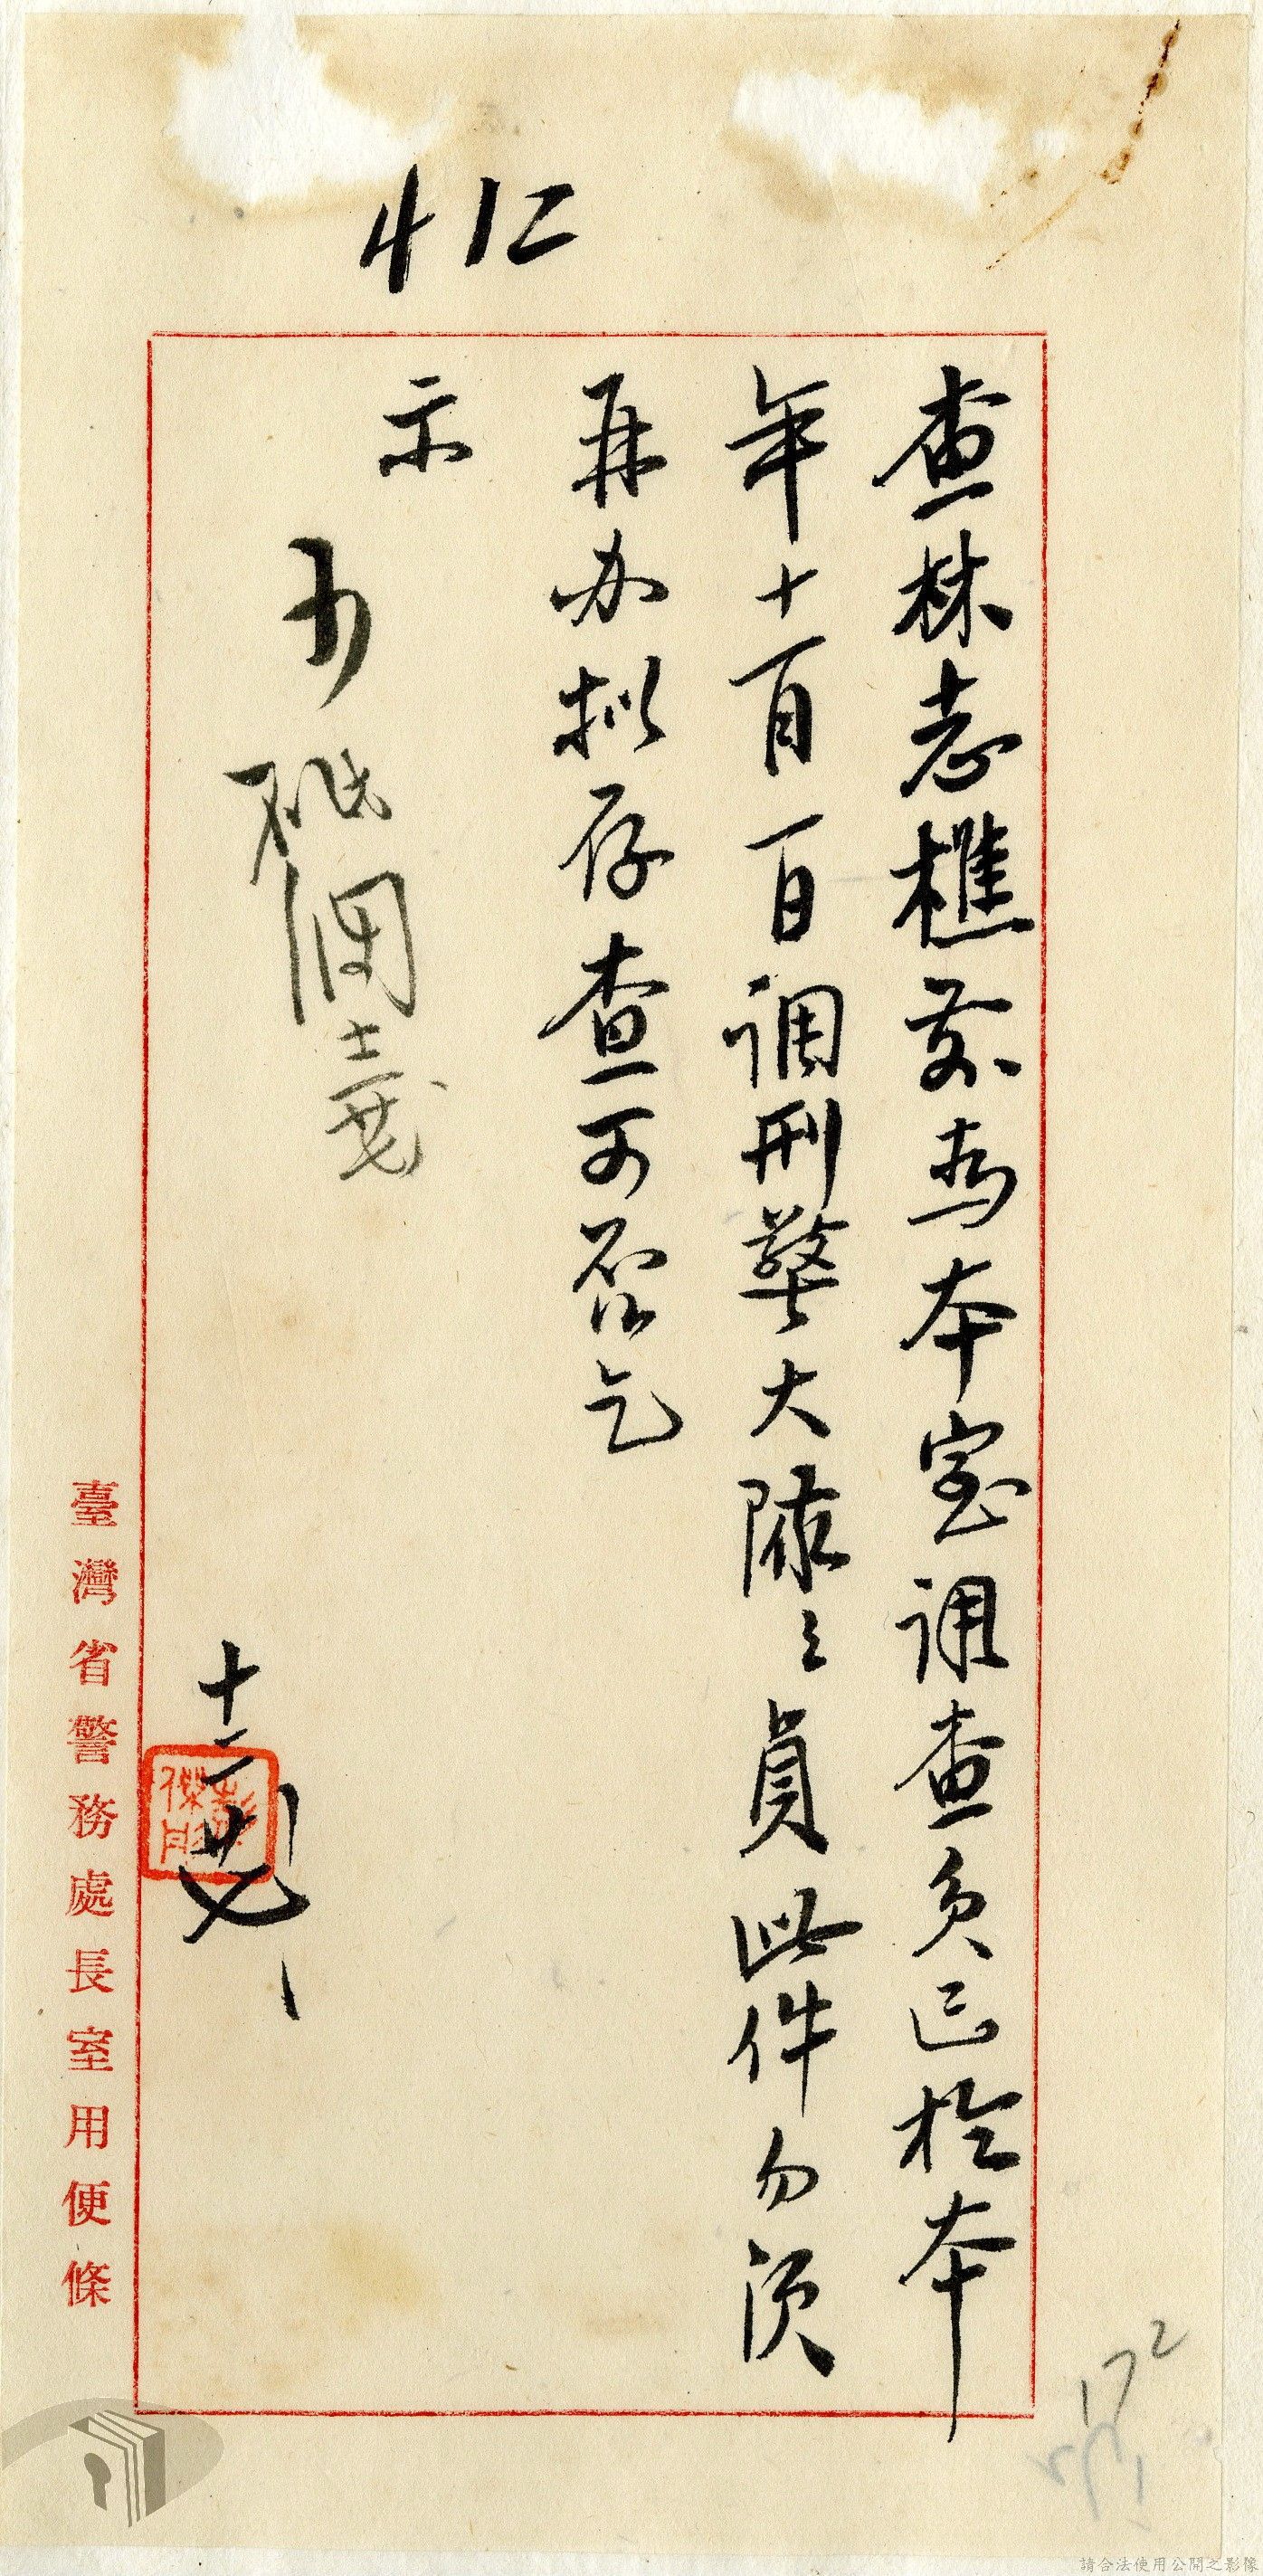 仁
4
查林志樵前為本室調查員已於本
年十一月一日調刑警大隊隊員此件勿須
再办拟存查可否乞
示
十二廿七
臺灣省警務處長室用便條
172
請合法使用公開之影像